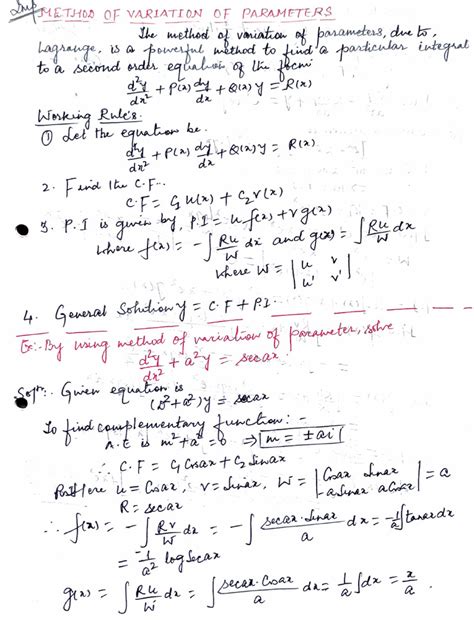 Imp METHOD OF VARIATION OF PARAMETERS
The method of variation of parameters, due to,
Lagrange, is a powerful method to find a particular integral
to a second order equation of the form
d²y/dx² + P(x) dy/dx + Q(x) y = R(x)
Working Rule's.
① Let the equation be.
d²y/dx² + P(x) dy/dx + Q(x) y = R(x)
2. Find the C.F..
C.F = C₁ u(x) + C₂ v(x)
3. P.I is given by, P.I = u f(x) + v g(x)
where f(x) = - ∫ Ru/W dx and g(x) = ∫ Ru/W dx
where W = | u v |
| u' v' |
4. General Solution y = C.F + P.I
Ex:- By using method of variation of parameter, solve
d²y/dx² + a²y = secax
Soln:. Given equation is
(D²+a²)y = secax
To find complementary function: -
A.E is m²+a² = 0 ⇒ m = ±ai
∴ C.F = C₁ Cosax + C₂ Sinax
Here u = Cosax, v = Sinax, W = | Cosax Sinax | = a
| -aSinax aCosax |
R = secax
∴ f(x) = - ∫ Rv/W dx = - ∫ secax·Sinax/a dx = -1/a ∫ tanax dx
= -1/a² log Secax
g(x) = ∫ Ru/W dx = ∫ secax·Cosax/a dx = 1/a ∫ dx = x/a.